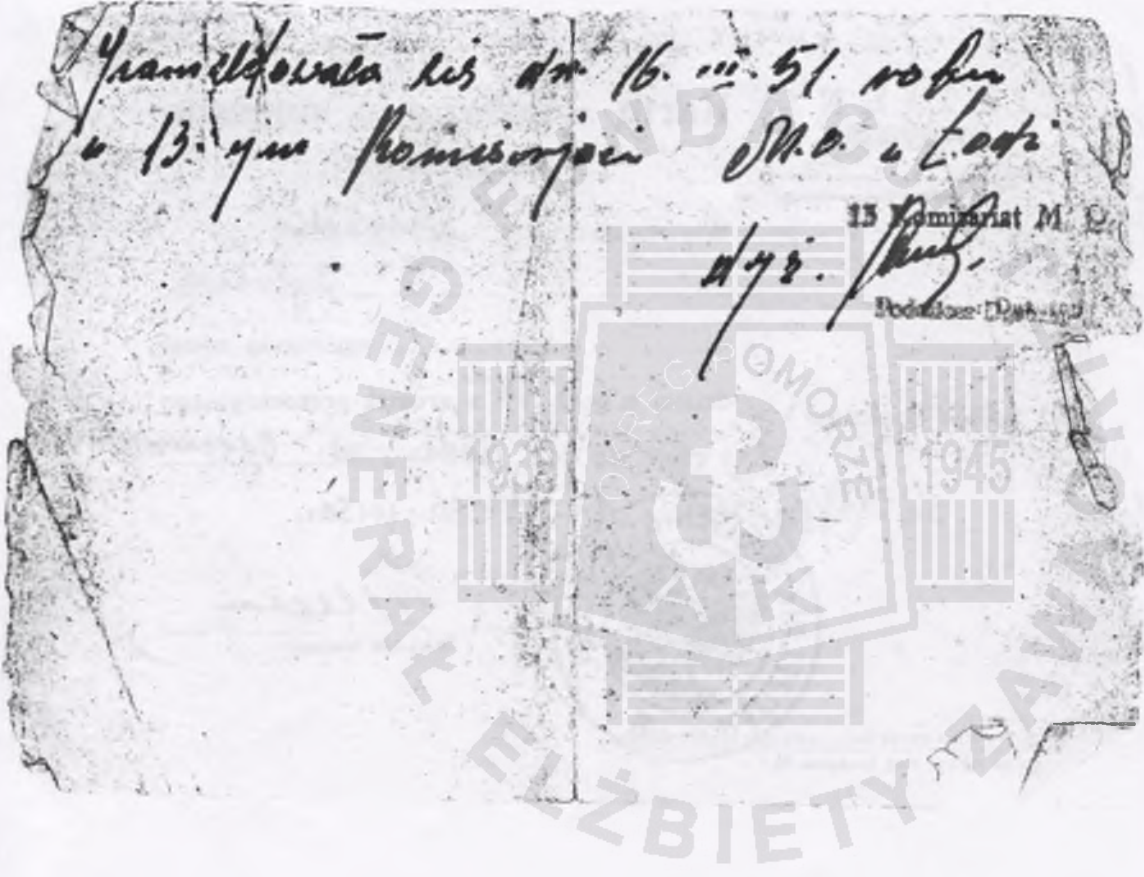 się dn. 16. III. 51. roku
w 13-ym Komisarjacie M.O. w Łodzi
13 Komisariat M. O.
dyż.
FUNDACJA GENERAŁ ELŻBIETY ZAWACKIEJ
OKRĘG POMORZE
1939 1945
AK